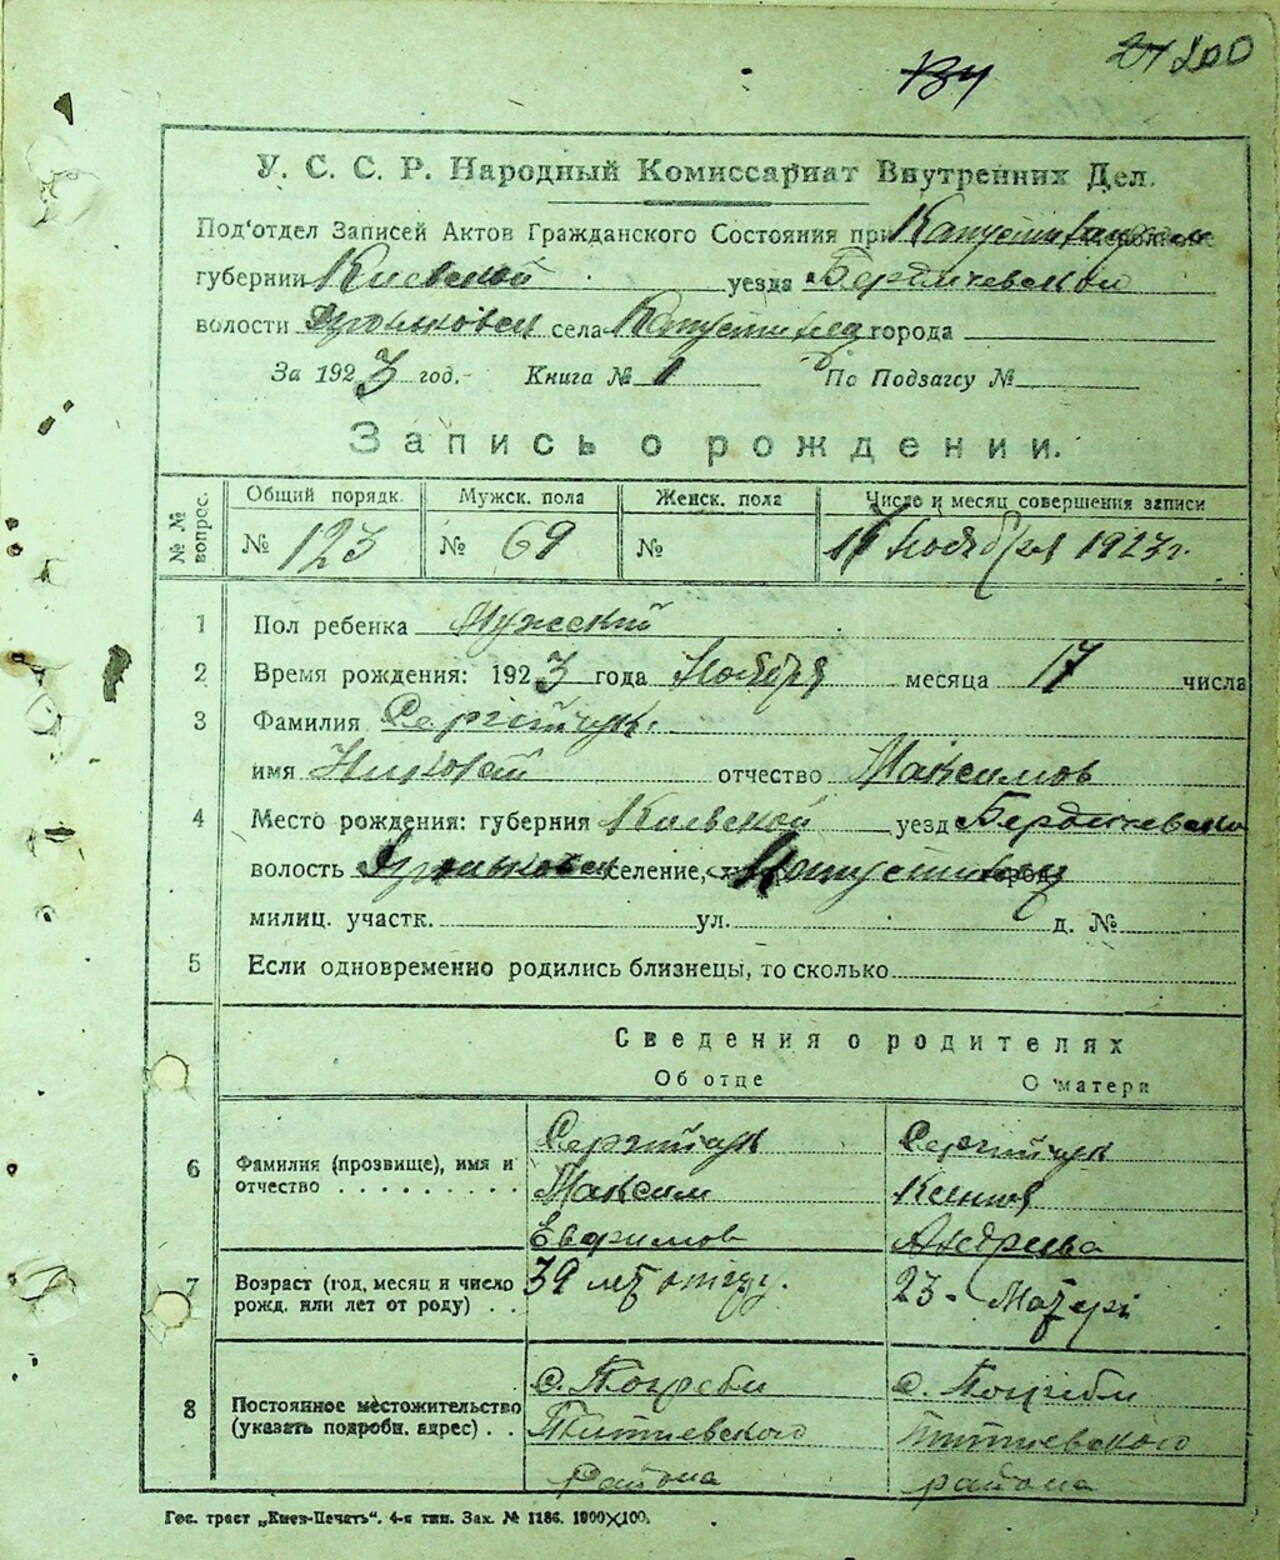 200
У. С. С. Р. Народный Комиссариат Внутренних Дел.
Под'отдел Записей Актов Гражданского Состояния при
губернии Киевской уезда Бердичевской
волости села города
За 1923 год. Книга № 1 По Подзагсу №
Запись о рождении.
№ № вопрос. Общий порядк. Мужск. пола Женск. пола Число и месяц совершения записи
№ 123 № 69 № ноября 1923 г.
1 Пол ребенка Мужеский
2 Время рождения: 1923 года Ноября месяца 17 числа
3 Фамилия Сергійчук.
имя отчество Максимов
4 Место рождения: губерния Киевской уезд Бердичевско
волость селение,
милиц. участк. ул. д. №
5 Если одновременно родились близнецы, то сколько
Сведения о родителях
Об отце О матери
Сергийчук Сергийчук
6 Фамилия (прозвище), имя и отчество Максим
Евфримов Андреева
7 Возраст (год, месяц и число рожд. или лет от роду) 39 лет отцу. 23 - Матері
8 Постоянное местожительство (указать подробн. адрес) с. Погреби с. Погреби
района района
Гос. трест „Киев-Печать“. 4-я тип. Зак. № 1186. 1000×100.